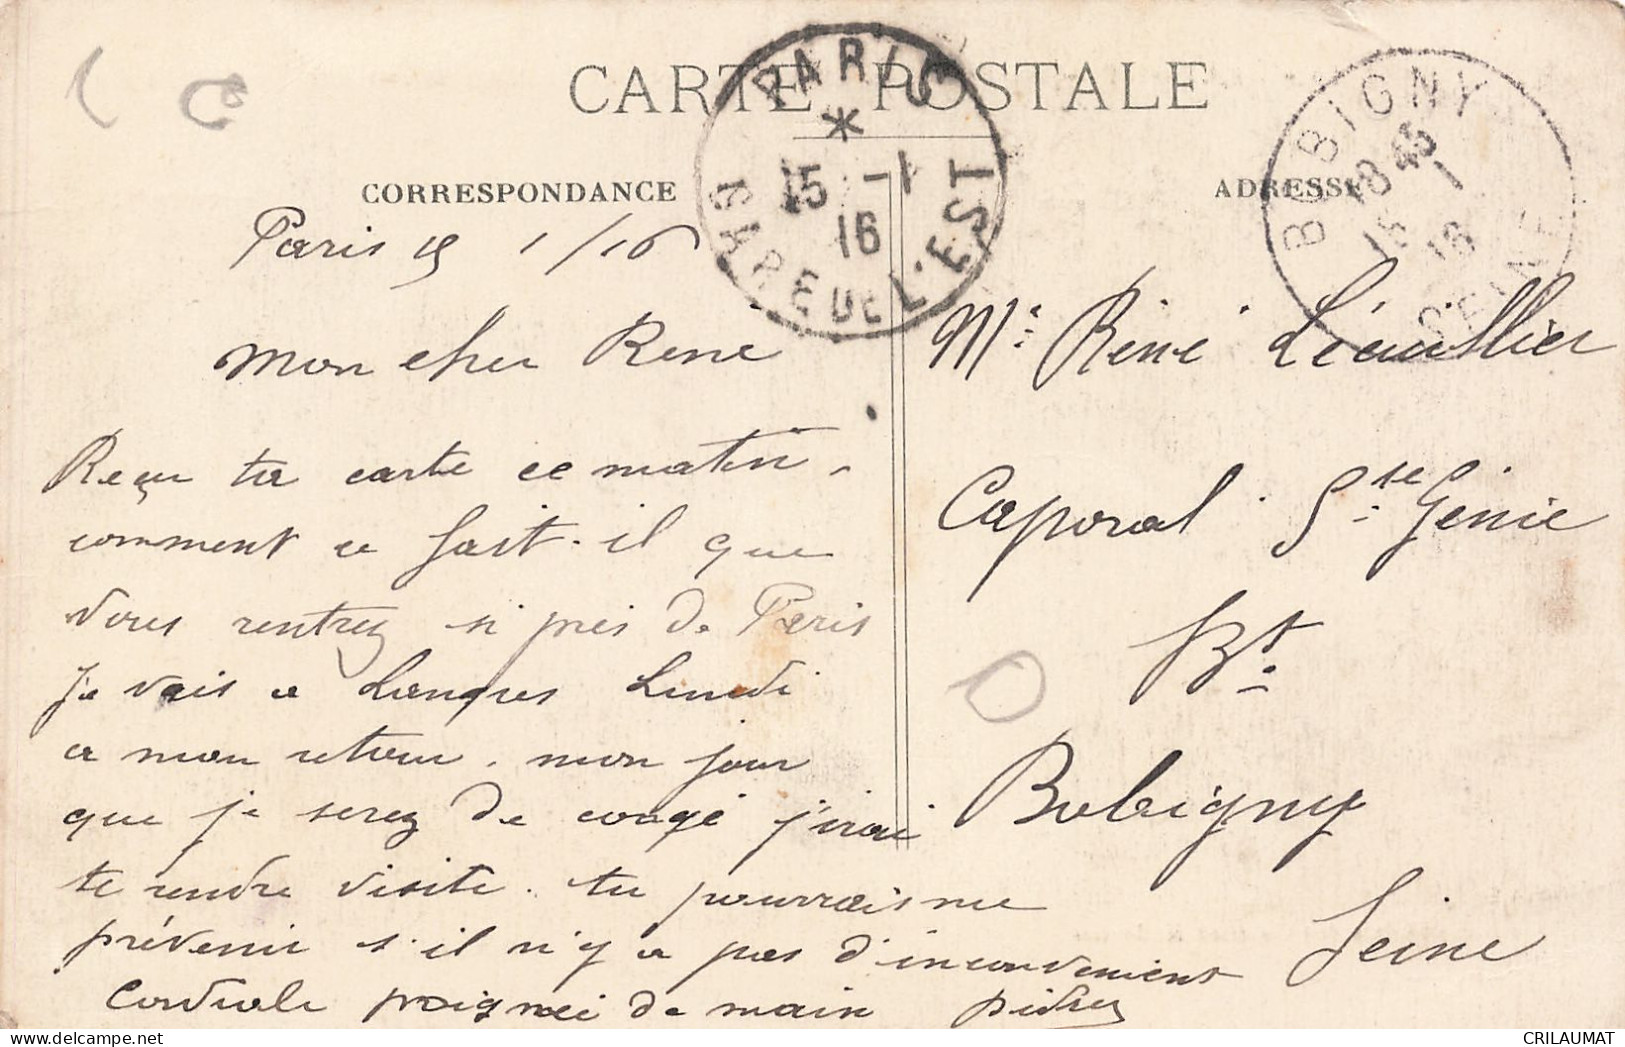 CARTE POSTALE
PARIS
*
15 -1
16
GARE DE L'EST
BOBIGNY
18 45
15 1
16
SEINE
CORRESPONDANCE
ADRESSE
Paris 15 1/16
Mon cher Rene
Reçu ta carte ce matin.
comment ce fait-il que
vous rentrez si près de Paris
Je vais a Langres Lundi
a mon retour. mon jour
que je serez de congé j'irai
te rendre visite. tu pourrais me
prévenir s'il n'y a pas d'inconvenient
Cordiale poignée de main
Mr. René Lécuillier
Caporal Ste Genie
Bt.
Bobigny
Seine
CRILAUMAT